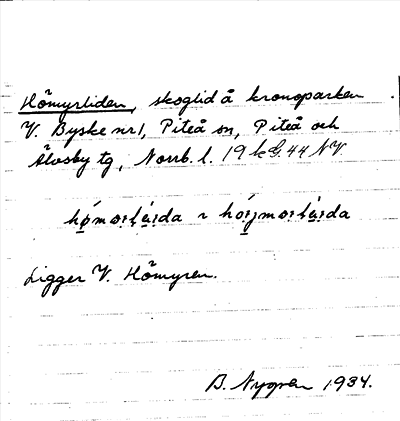 Hömyrliden, skoglid å kronoparken
V. Byske nr 1, Piteå sn, Piteå och
Älvsby tg, Norrb. l. 19 k G. 44 NV.
Ligger V. Hömyren.
B. Nygren 1934.